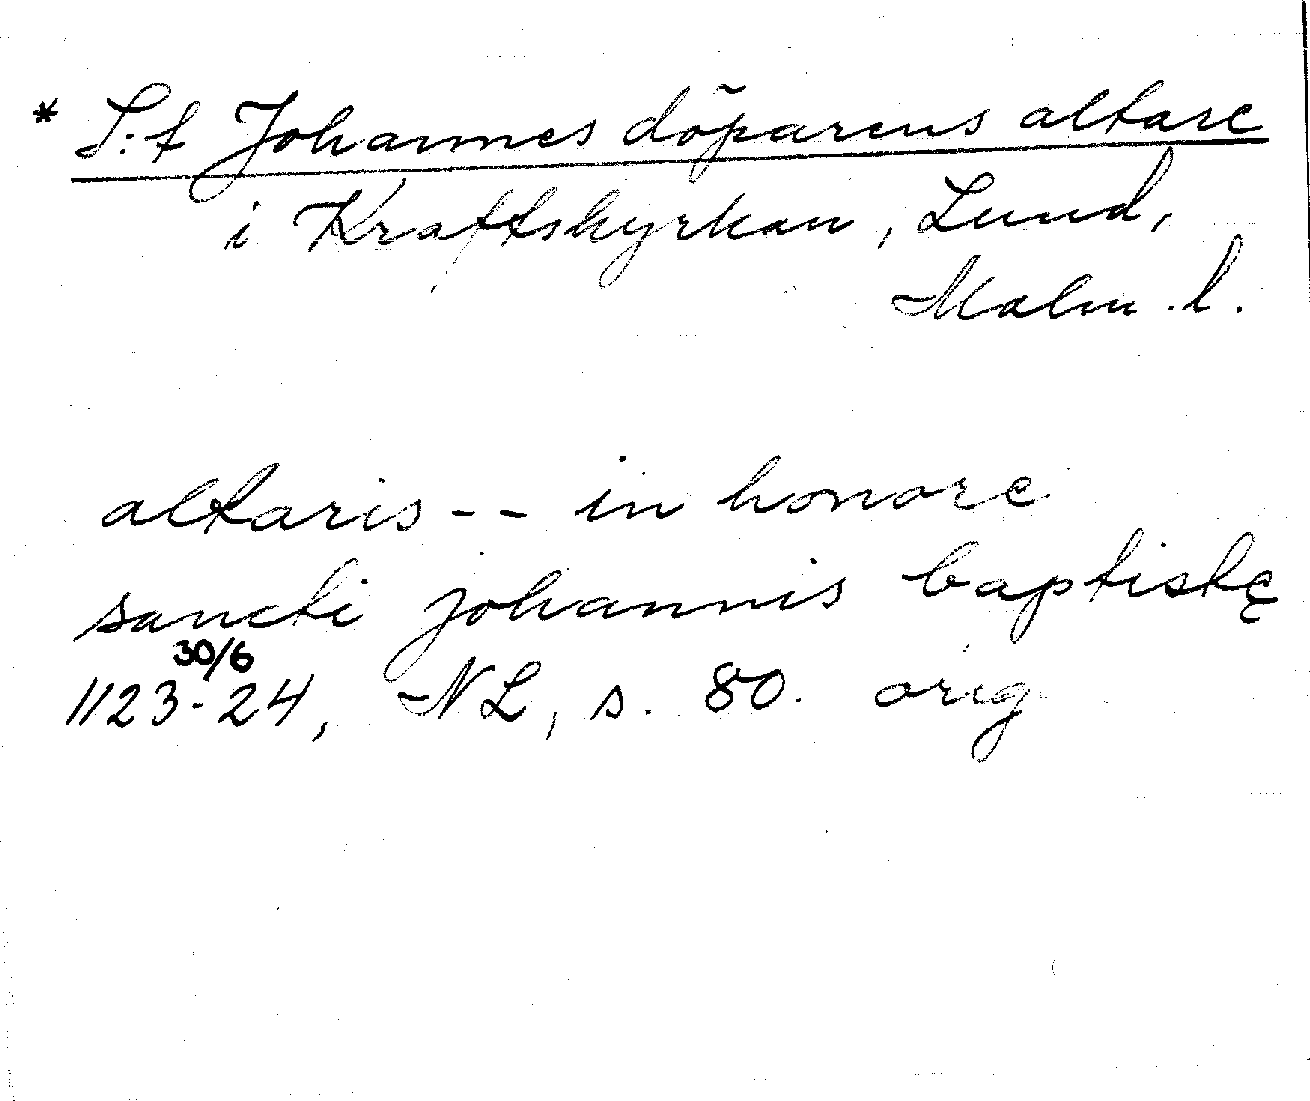 * S:t Johannes döparens altare
i Kraftskyrkan, Lund,
Malm. l.
altaris -- in honore
sancti johannis baptistę
30/6
1123-24, NL, s. 80. orig